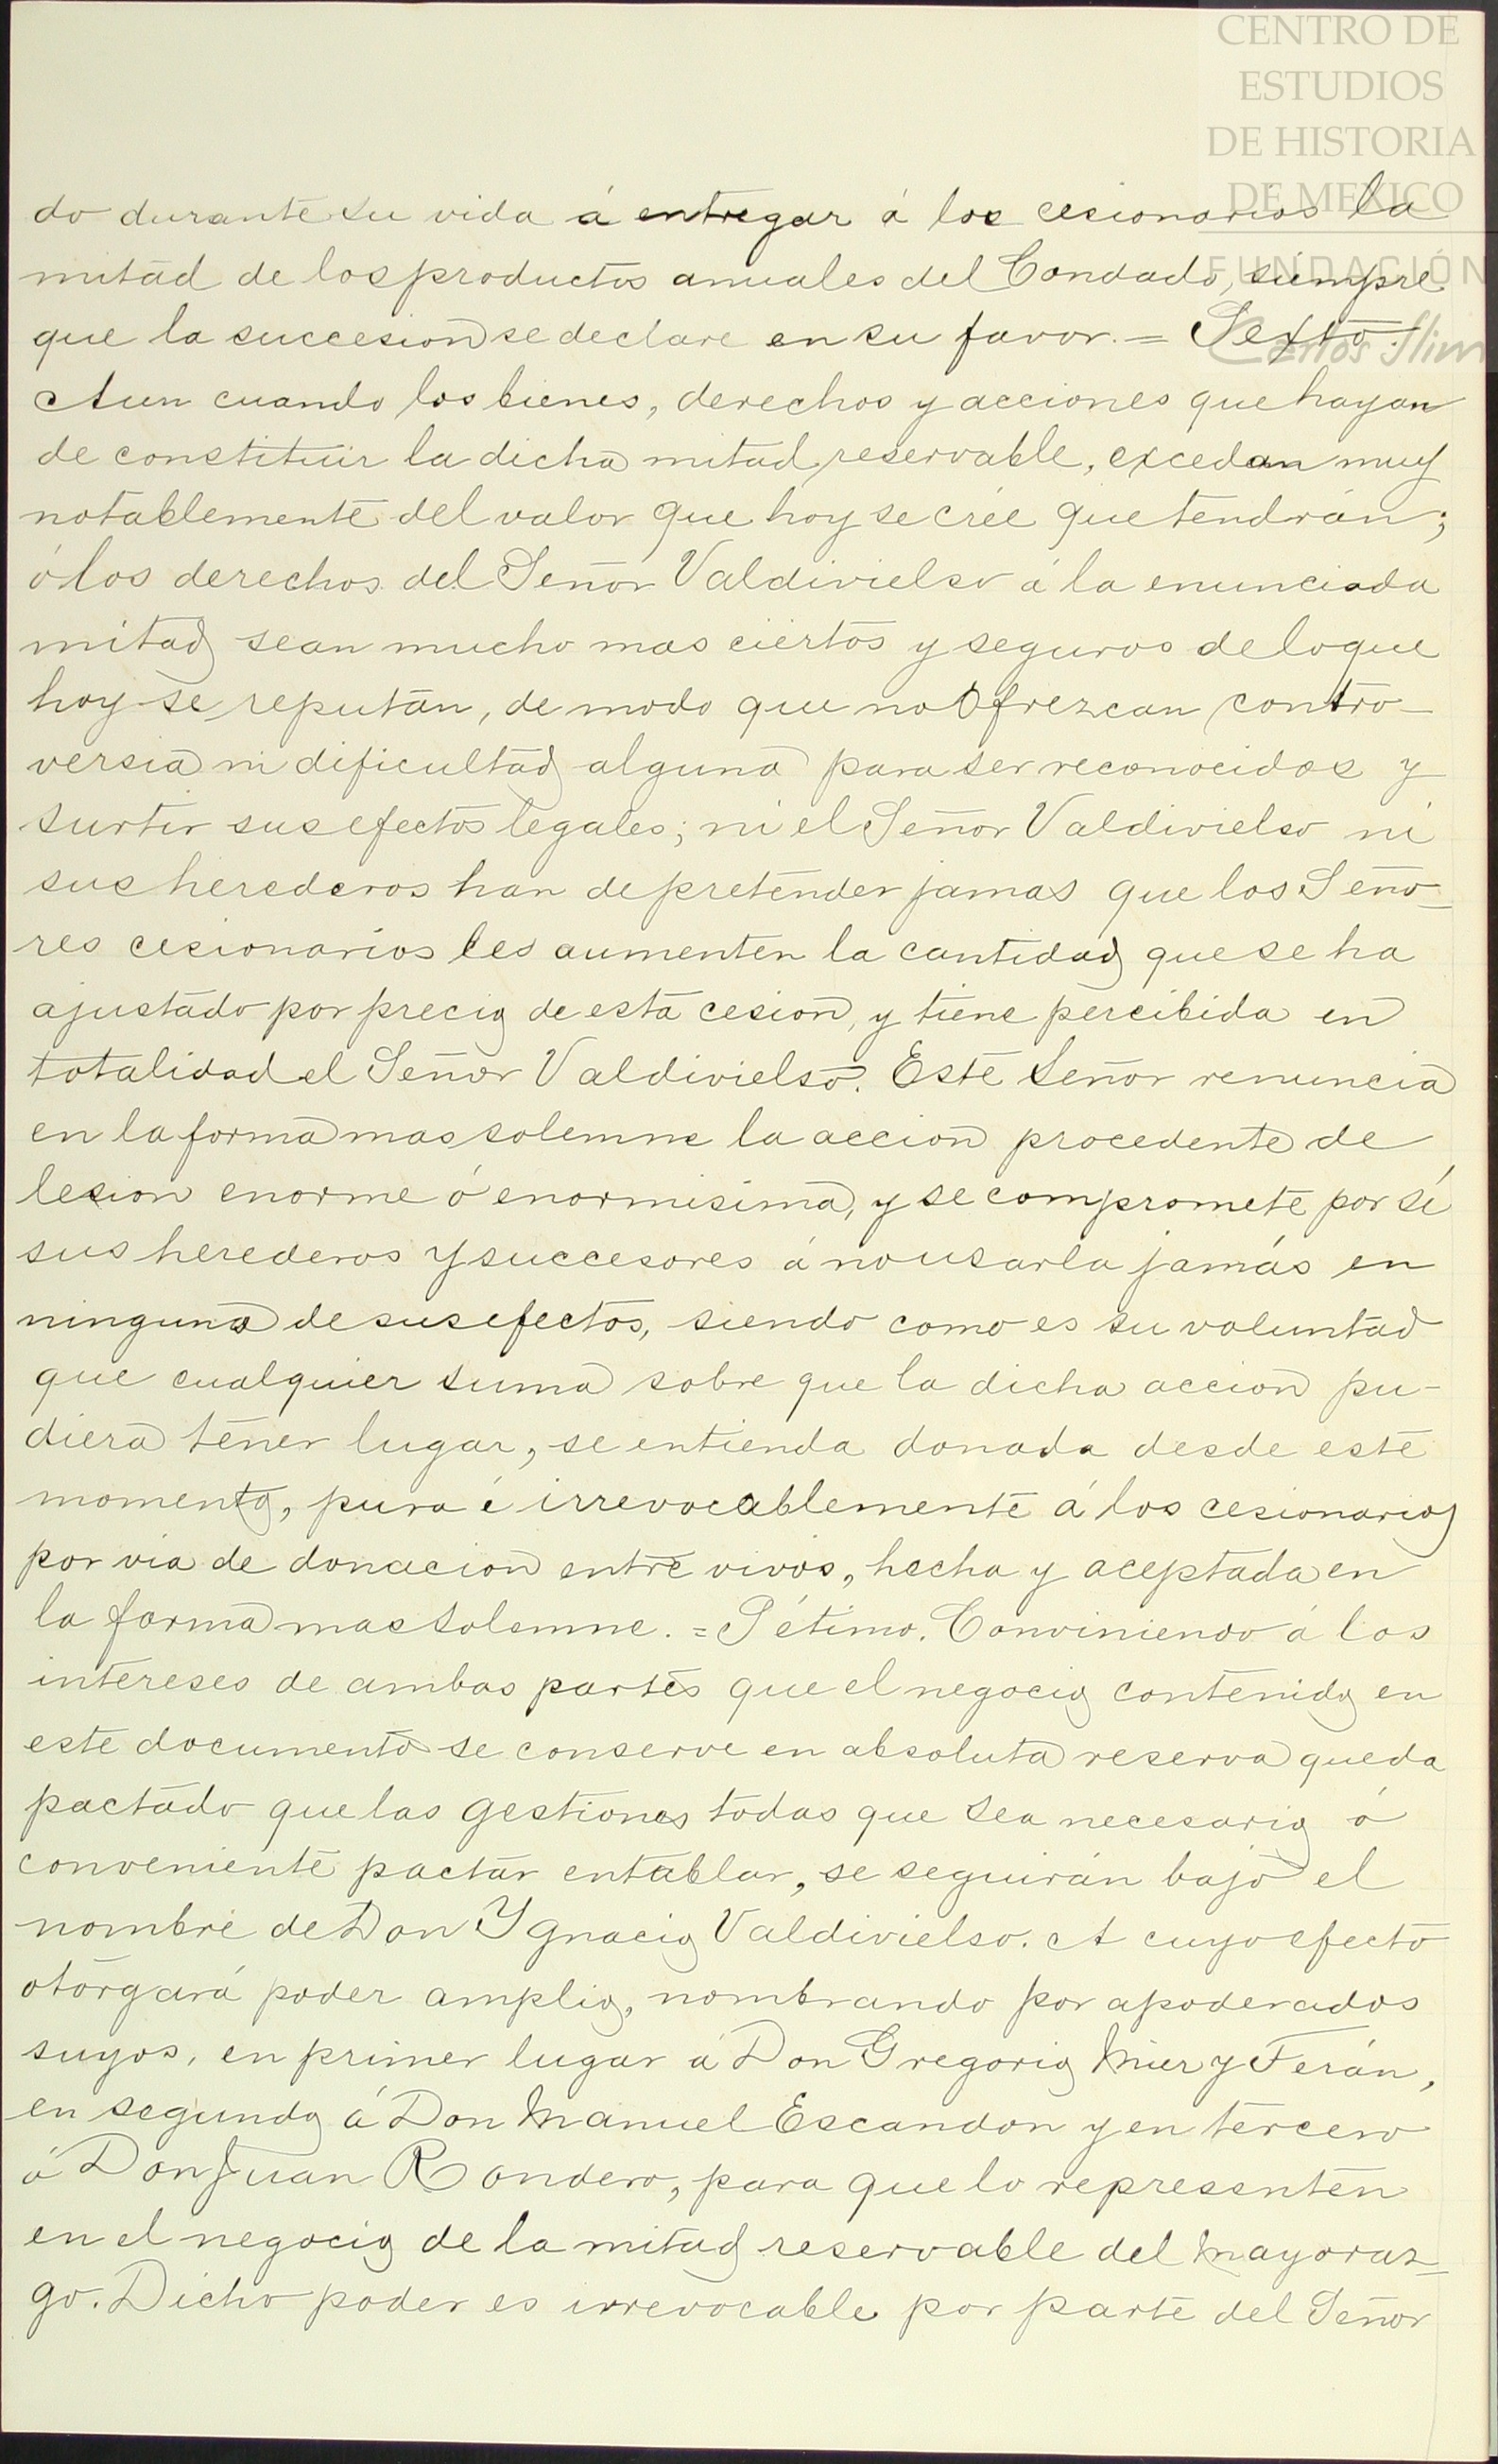 CENTRO DE
ESTUDIOS
DE HISTORIA
DE MEXICO
FUNDACIÓN
Carlos Slim
do durante su vida á entregar á los cesionarios la
mitad de los productos anuales del Condado, siempre
que la succesion se declare en su favor. = Sexto.
Aun cuando los bienes, derechos y acciones que hayan
de constituir la dicha mitad reservable, excedan muy
notablemente del valor que hoy se crée que tendrán;
ó los derechos del Señor Valdivielso á la enunciada
mitad sean mucho mas ciertos y seguros de lo que
hoy se reputan, de modo que no Ofrezcan contro-
versia ni dificultad alguna para ser reconocidos y
surtir sus efectos legales; ni el Señor Valdivielso ni
sus herederos han de pretender jamas que los Seño-
res cesionarios les aumenten la cantidad que se ha
ajustado por precio de esta cesion, y tiene percibida en
totalidad el Señor Valdivielso. Este Señor renuncia
en la forma mas solemne la accion procedente de
lesion enorme ó enormisima, y se compromete por sí
sus herederos y succesores á no usarla jamás en
ninguno de sus efectos, siendo como es su voluntad
que cualquier suma sobre que la dicha accion pu-
diera tener lugar, se entienda donada desde este
momento, pura é irrevocablemente á los cesionarios
por via de donacion entre vivos, hecha y aceptada en
la forma mas solemne. = Sétimo. Conviniendo á los
intereses de ambas partes que el negocio contenido en
este documento se conserve en absoluta reserva queda
pactado que las gestiones todas que sea necesario ó
conveniente pactar entablar, se seguirán bajo el
nombre de Don Ygnacio Valdivielso. A cuyo efecto
otorgará poder amplio, nombrando por apoderados
suyos, en primer lugar á Don Gregorio Mier y Terán,
en segundo á Don Manuel Escandon y en tercero
á Don Juan Rondero, para que lo representen
en el negocio de la mitad reservable del Mayoraz-
go. Dicho poder es irrevocable por parte del Señor